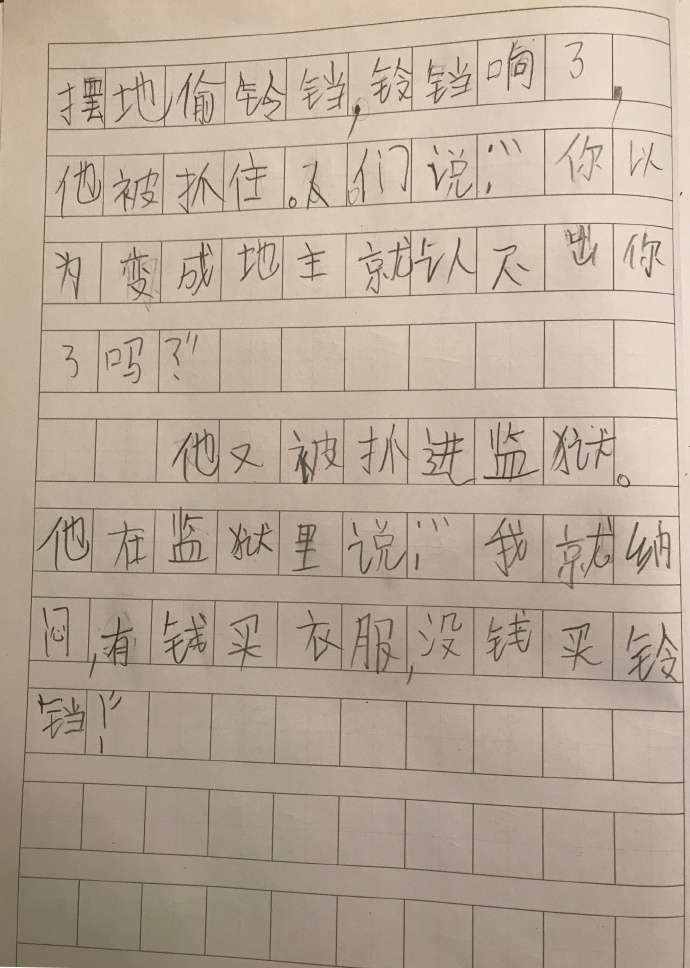 摆地偷铃铛,铃铛响了,
他被抓住。人们说:“你以
为变成地主就认不出你
了吗?”
他又被抓进监狱。
他在监狱里说:“我就纳
闷,有钱买衣服,没钱买铃
铛!”